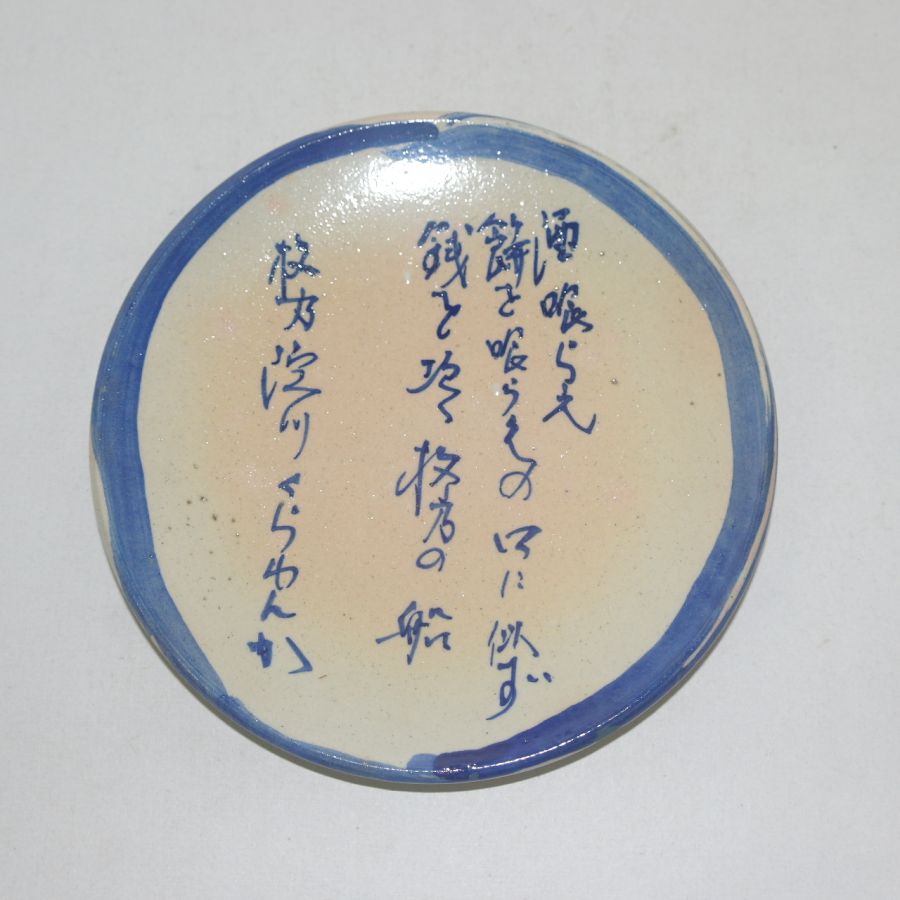 酒喰らえ
餅を喰らえの口に似ず
銭を 枚方の船
枚方淀川くらわんか